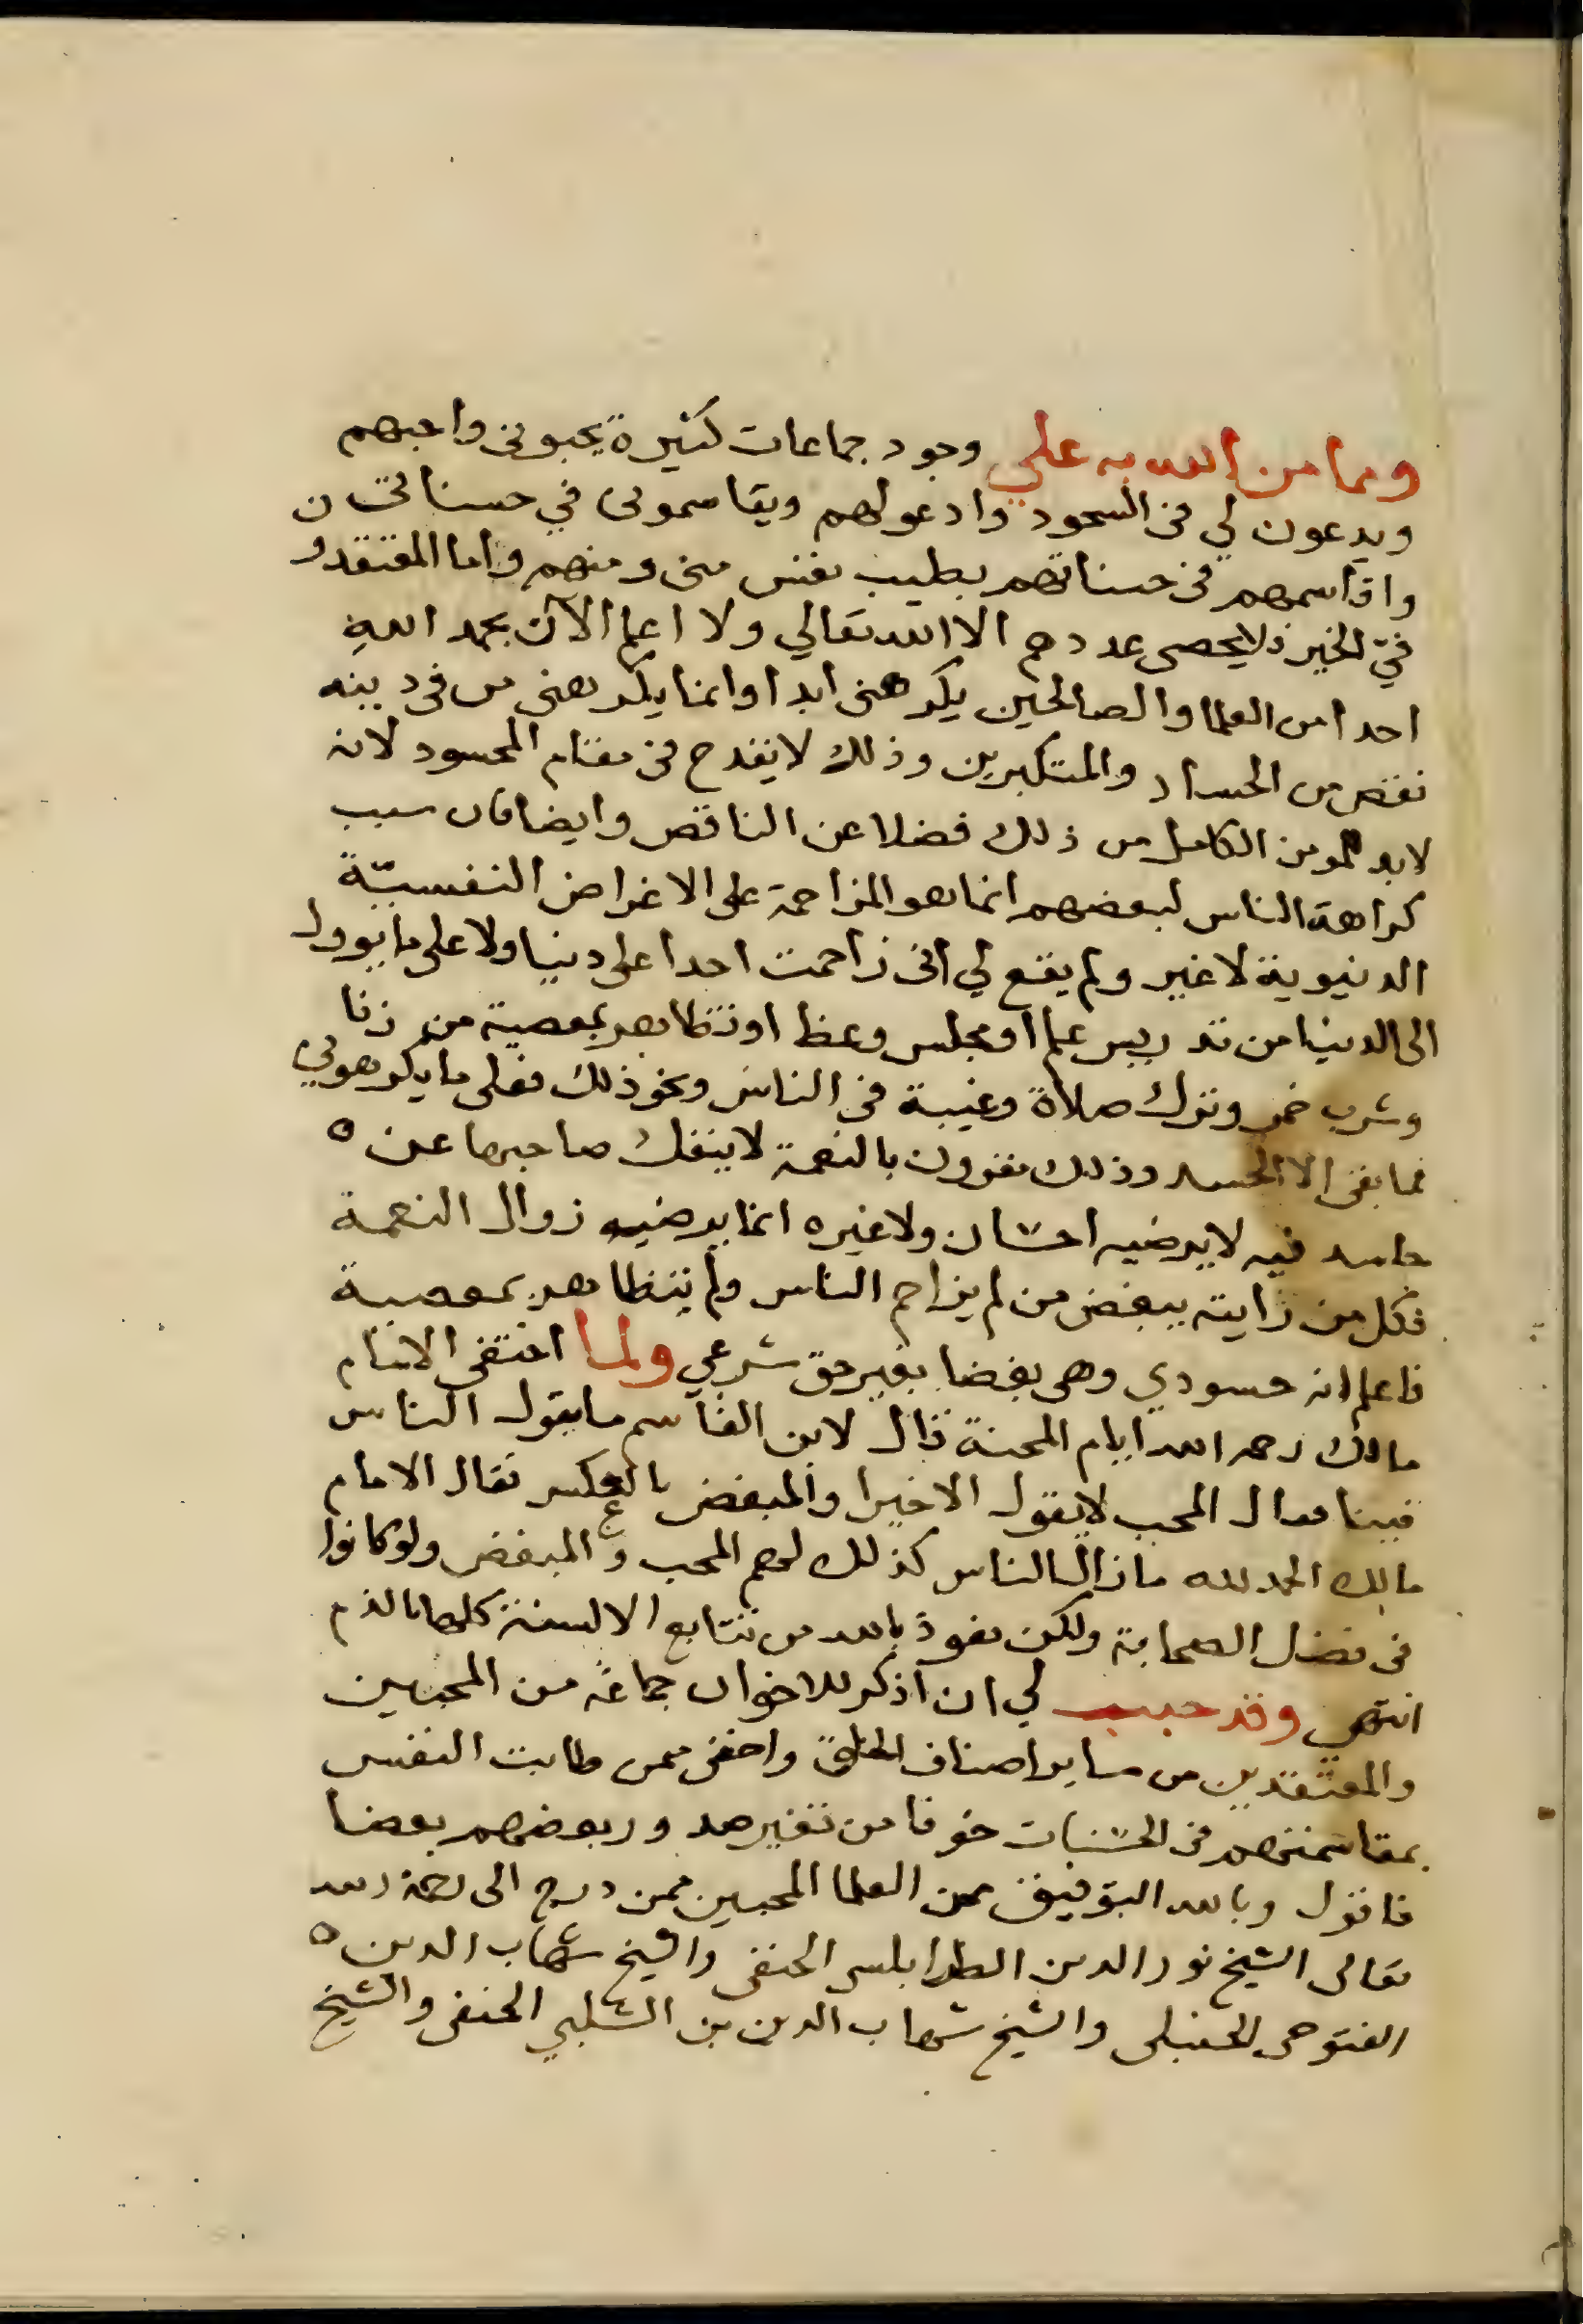 ومما من الله به علي وجود جماعات كثيرة يحبوني واحبهم
ويدعون لي في السجود وادعولهم ويقاسموني في حسناتي
واقاسمهم في حسناتهم بطيب نفس مني ومنهم واما المعتقدون
في الخير فلا يحصي عددهم الا الله تعالي ولا اعلم الآن بحمد الله
احدا من العلما والصالحين يكرهني ابدا وانما يكرهني من في دينه
نقص من الحساد والمتكبرين وذلك لا يقدح في مقام المحسود لانه
لابد للمومن الكامل من ذلك فضلا عن الناقص وايضا فان سبب
كراهة الناس لبعضهم انما هو المزاحمة على الاغراض النفسيّة
الدنيوية لا غير ولم يقع لي اني زاحمت احدا على دنيا ولا على ما يوول
الى الدنيا من تدريس علم او مجلس وعظ او تظاهر بمعصية من زنا
وشرب خمر وترك صلاة وغيبة في الناس ونحو ذلك فعلى ما يكرهوني
فما بقى الا الحسد وذلك مقرون بالنعمة لا ينفك صاحبها عن ه
حاسد فيه لا يرضيه احسان ولا غيره انما يرضيه زوال النعمة
فكل من رايته يبغض من لم يزاحم الناس ولم يتظاهر بمعصية
فاعلم انه حسودي وهى بغضا بغير حق شرعي ولما اختفى الامام
مالك رحمه الله ايام المحنة قال لابن القاسم ما يقول الناس
فينا فقال المحب لا يقول الا خيرا والمبغض بالعكس فقال الامام
مالك الحمد لله ما زال الناس كذلك لهم المحب والمبغض ولو كانوا
في فضل الصحابة ولكن نعوذ بالله من تتابع الالسنة كلها بالذم
انتهى وقد حبب لي ان اذكر للاخوان جماعة من المحبين
والمعتقدين من ساير اصناف الخلق واخفي ممن طابت النفس
بمقاسمتهم في الحسنات خوفا من تغيرهم وربعضهم بعضا
فاقول وبالله التوفيق ممن العلما المحبين ممن درج الى رحمة الله
تعالى الشيخ نور الدين الطرابلسي الحنفي والشيخ شهاب الدين ه
الفتوحي الحنبلي والشيخ شهاب الدين بن الشلبي الحنفي والشيخ